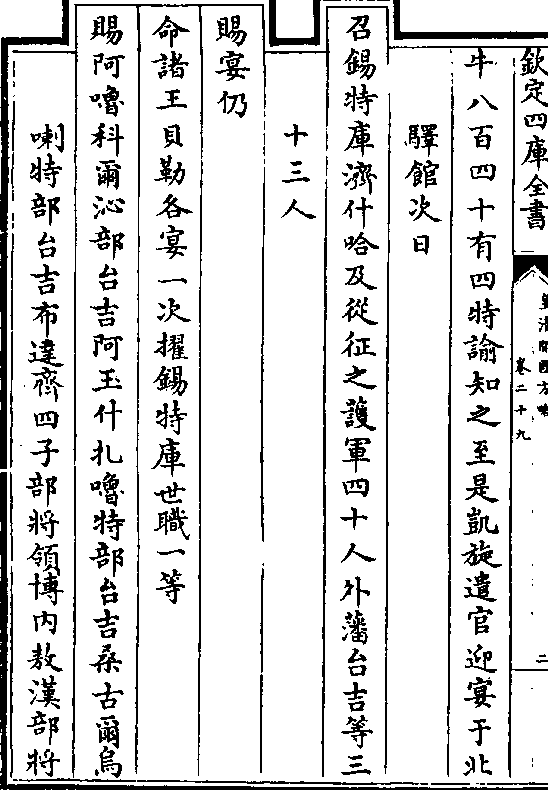 欽定四庫全書
卷二十九
二
牛八百四十有四特諭知之至是凱旋遣官迎宴于北
驛館次日
召錫特庫濟什哈及從征之護軍四十人外藩台吉等三
十三人
賜宴仍
命諸王貝勒各宴一次擢錫特庫世職一等
賜阿嚕科爾沁部台吉阿玉什扎嚕特部台吉桑古爾烏
喇特部台吉布達齊四子部將領博內敖漢部將